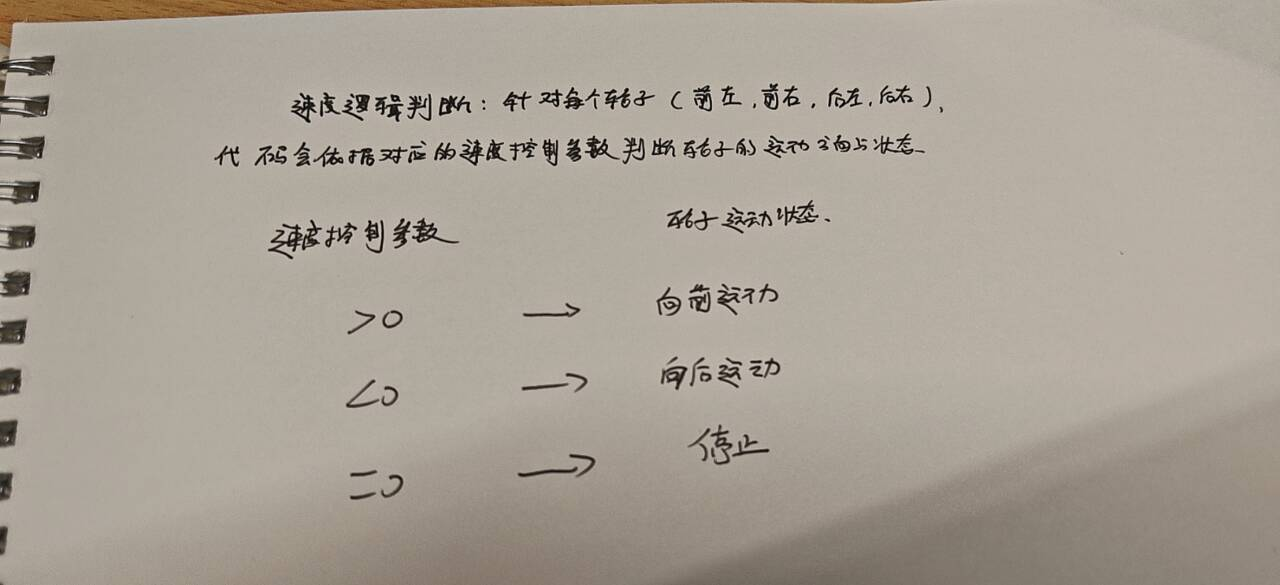 速度逻辑判断：针对每个轮子（前左，前右，后左，后右），
代码会依据对应的速度控制参数判断轮子的运动方向与状态。
速度控制参数 轮子运动状态、
>0 → 向前运动
<0 → 向后运动
=0 → 停止